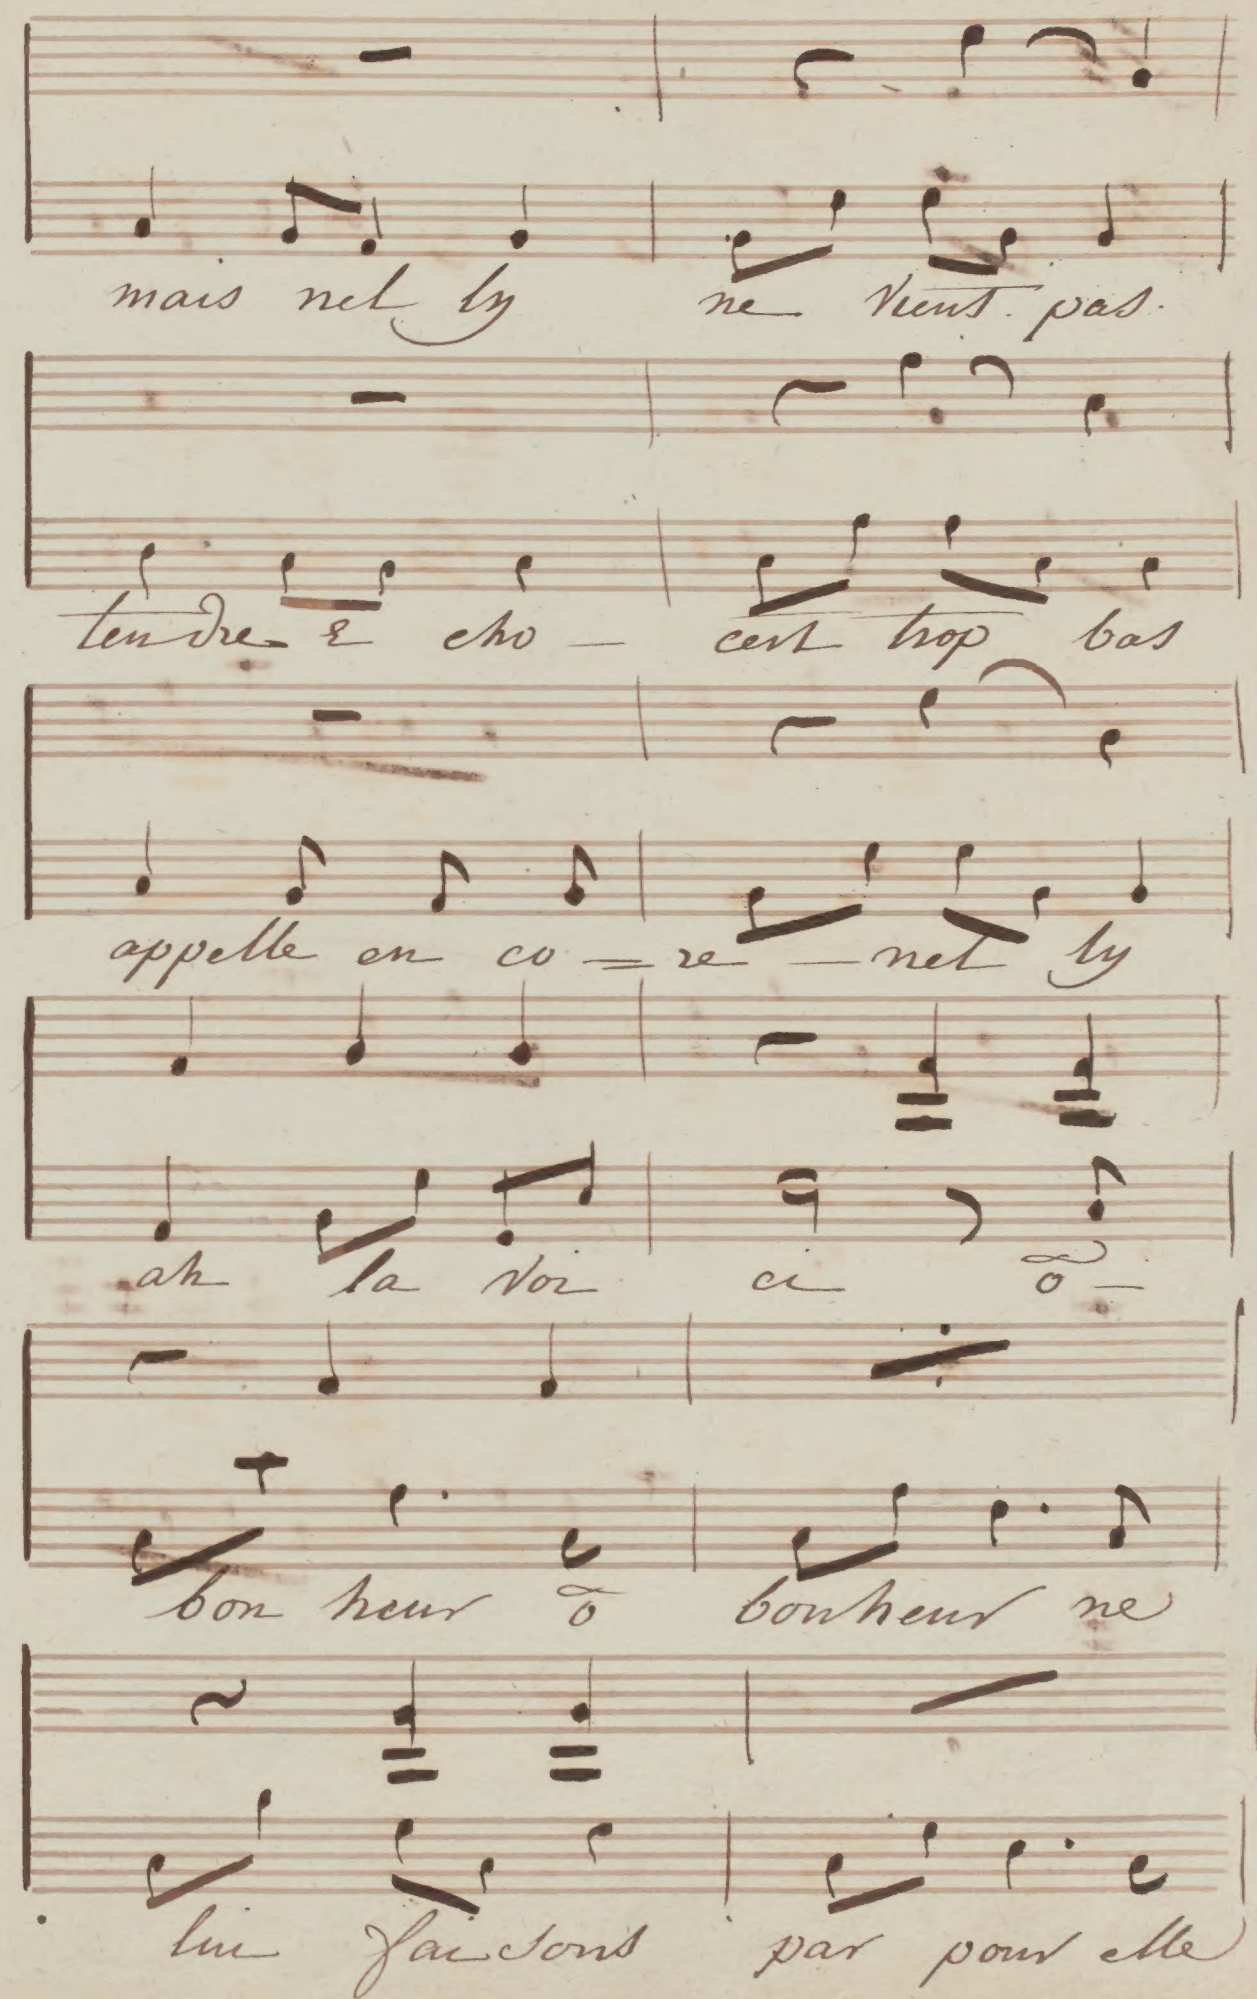 mais nel ly ne vient pas.
tendre E cho — cest trop bas
appelle en co = re — nel ly
ah la voi ci ô —
bon heur ô bonheur ne
lui fai sons par pour elle